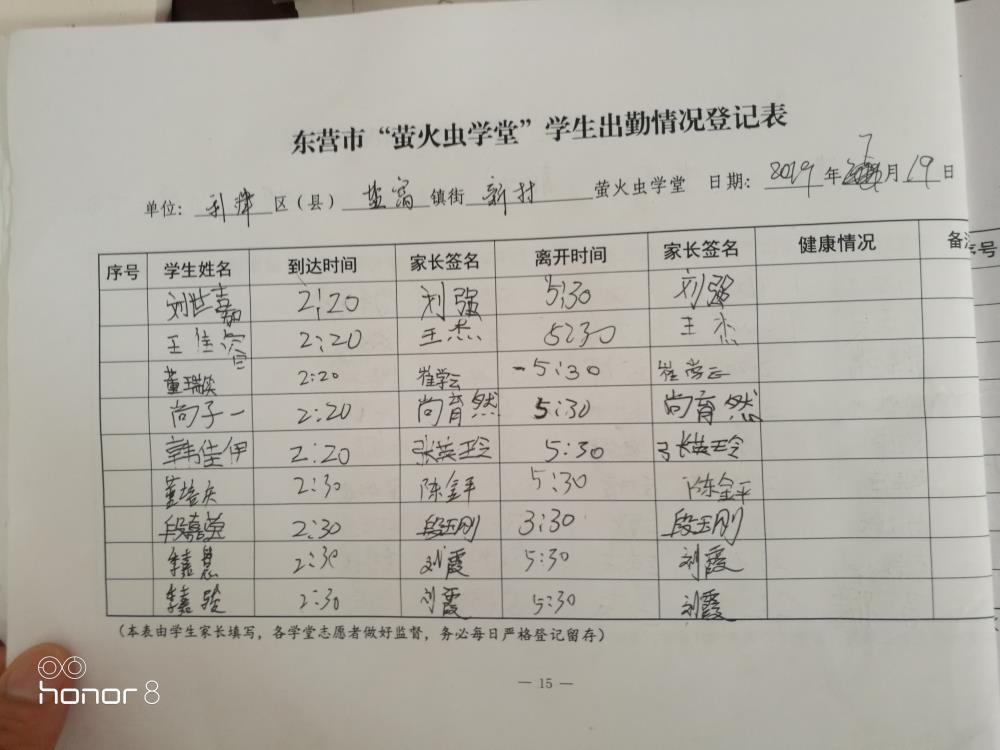 东营市“萤火虫学堂”学生出勤情况登记表
单位: 利津 区（县） 盐窝 镇街 新村 萤火虫学堂 日期: 2019 年 7 月 19 日
序号 学生姓名 到达时间 家长签名 离开时间 家长签名 健康情况 备
序号
刘世嘉 2:20 刘强 5:30 刘强
王佳容 2:20 王杰 5:30 王杰
董瑞 2:20 崔学云 5:30 崔学云
尚子一 2:20 尚育然 5:30 尚育然
韩佳伊 2:20 张英玲 5:30 张英玲
董培庆 2:30 陈金平 5:30 陈金平
段嘉萱 2:30 段玉刚 3:30 段玉刚
2:30 刘霞 5:30 刘霞
2:30 刘霞 5:30 刘霞
（本表由学生家长填写，各学堂志愿者做好监督，务必每日严格登记留存）
— 15 —
honor 8